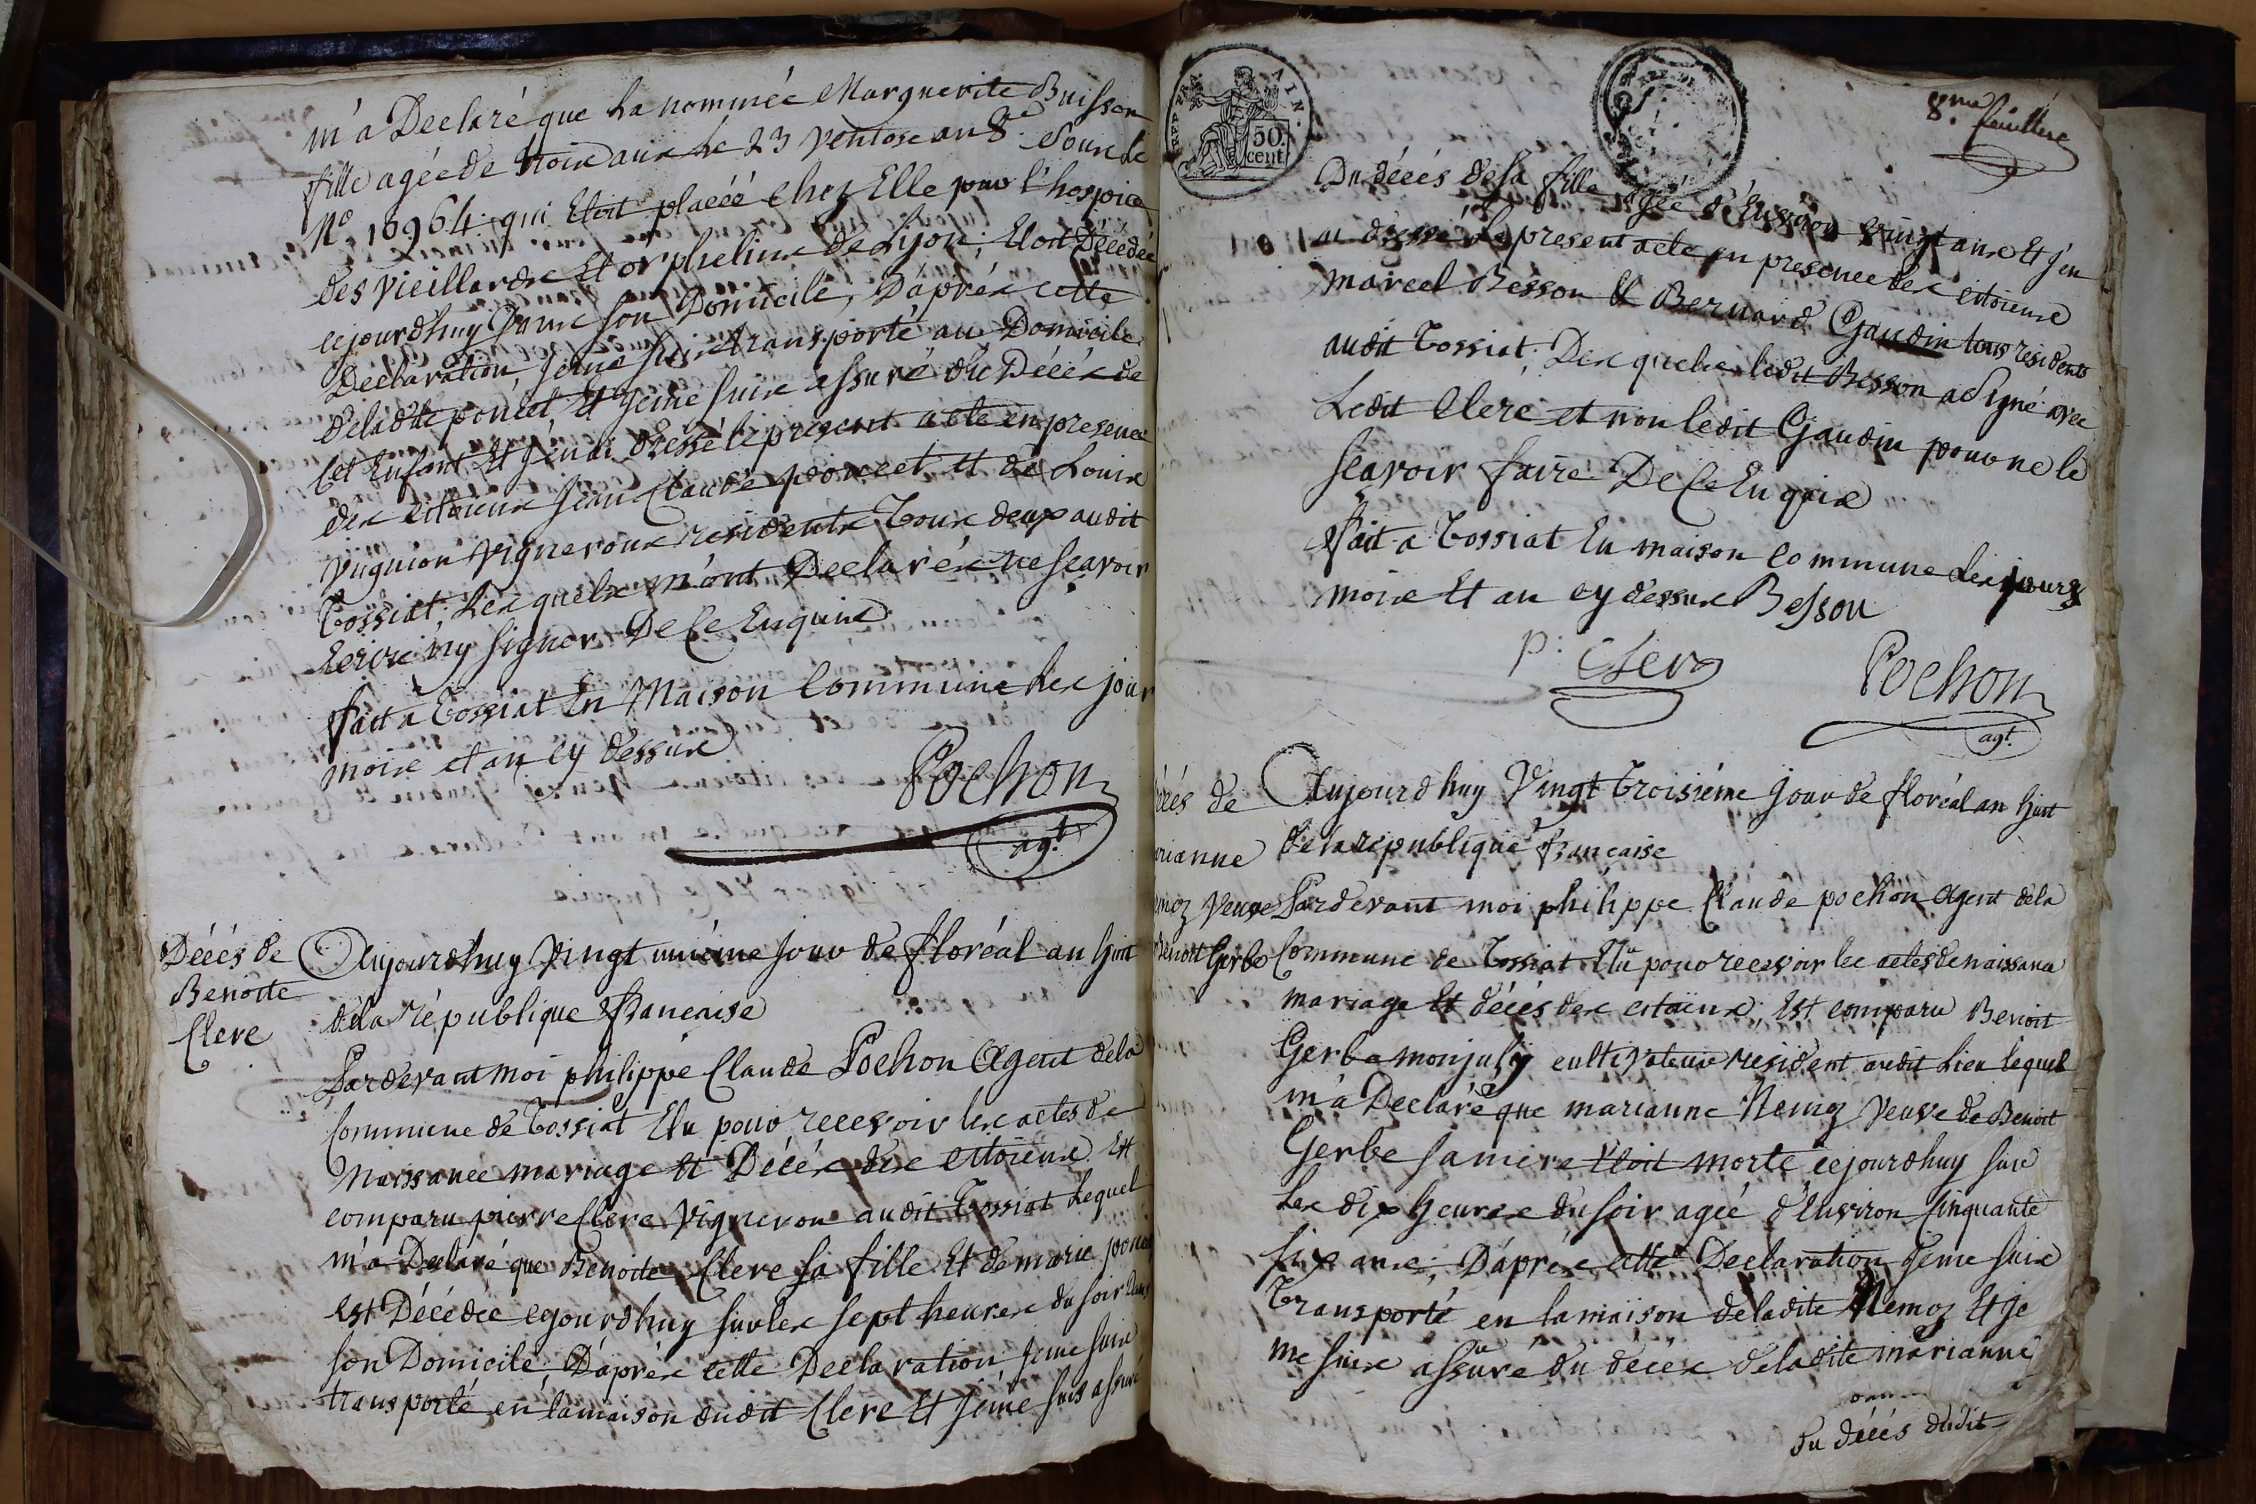 m'a Declaré que la nommée Marguerite Buisson
fille agée de trois ans le 23 ventose an 8e sous le
No 10964. qui Etoit placée chez Elle pour l'hospice
des vieillards et orphelins de Lyon, Etoit Décédée
cejourdhuy dans son Domicile, D'après cette
Declaration je me suis transporté au Domicile
de ladte poncet Et je me suis assuré du Décès de
Cet Enfant Et j'en ai dressé le present acte en presence
des citoiens jean Claude poncet et de Louis
vugnion vignerons residents Tous deux audit
Tossiat, Lesquels m'ont Declarés ne sçavoir
Ecrire ny signer De Ce Enquis
fait a Tossiat En Maison Commune les jour
mois et an cy dessus
Pochon
agt.
Décés de
Benoite
Clerc
Aujourdhuy Vingt unième jour de floréal an huit
de la république francaise
Pardevant moi philippe Claude Pochon Agent de la
Commune de Tossiat Elu pour recevoir les actes de
Naissance mariage Et Décès des citoiens Est
comparu pierre Clerc Vigneron audit Tossiat Lequel
m'a Declaré que Benoite Clerc sa fille Et de marie poncet
est Décédée cejourdhuy sur les sept heures du soir dans
son Domicile, D'après cette Declaration je me suis
transporté en la maison dudit Clerc Et je me suis assuré
REP FRA AIN.
50
cent
8me feuillet
Du décés de sa fille agée d'Environ vingt ans Et j'en
ai dressé le present acte en presence des citoiens
marcel Besson & Bernard Gaudin tous residents
audit Tossiat, Desquels ledit Besson a signé avec
Ledit Clerc et non ledit Gaudin pour ne le
sçavoir faire De Ce Enquis
fait a Tossiat En maison commune les jours
mois Et an cy dessus Besson
p. Clerc
Pochon
agt.
décés de
marianne
Nemoz Veuve
Benoit Gerbe
Aujourdhuy Vingt Troisiéme jour de floréal an huit
de la république francaise
Pardevant moi philippe Claude pochon Agent de la
Commune de Tossiat Elu pour recevoir les actes de naissance
mariage Et décés des citoiens, Est comparu Benoit
Gerbe monjuly cultivateur resident audit Lieu lequel
m'a Declaré que marianne Nemoz Veuve de Benoit
Gerbe sa mere Etoit morte cejourdhuy sur
Les dix heures du soir agée d'Environ Cinquante
six ans, D'après cette Declaration je me suis
Transporté en la maison de ladite Nemoz Et je
me suis assuré du décès de ladite marianne
du décés dudit